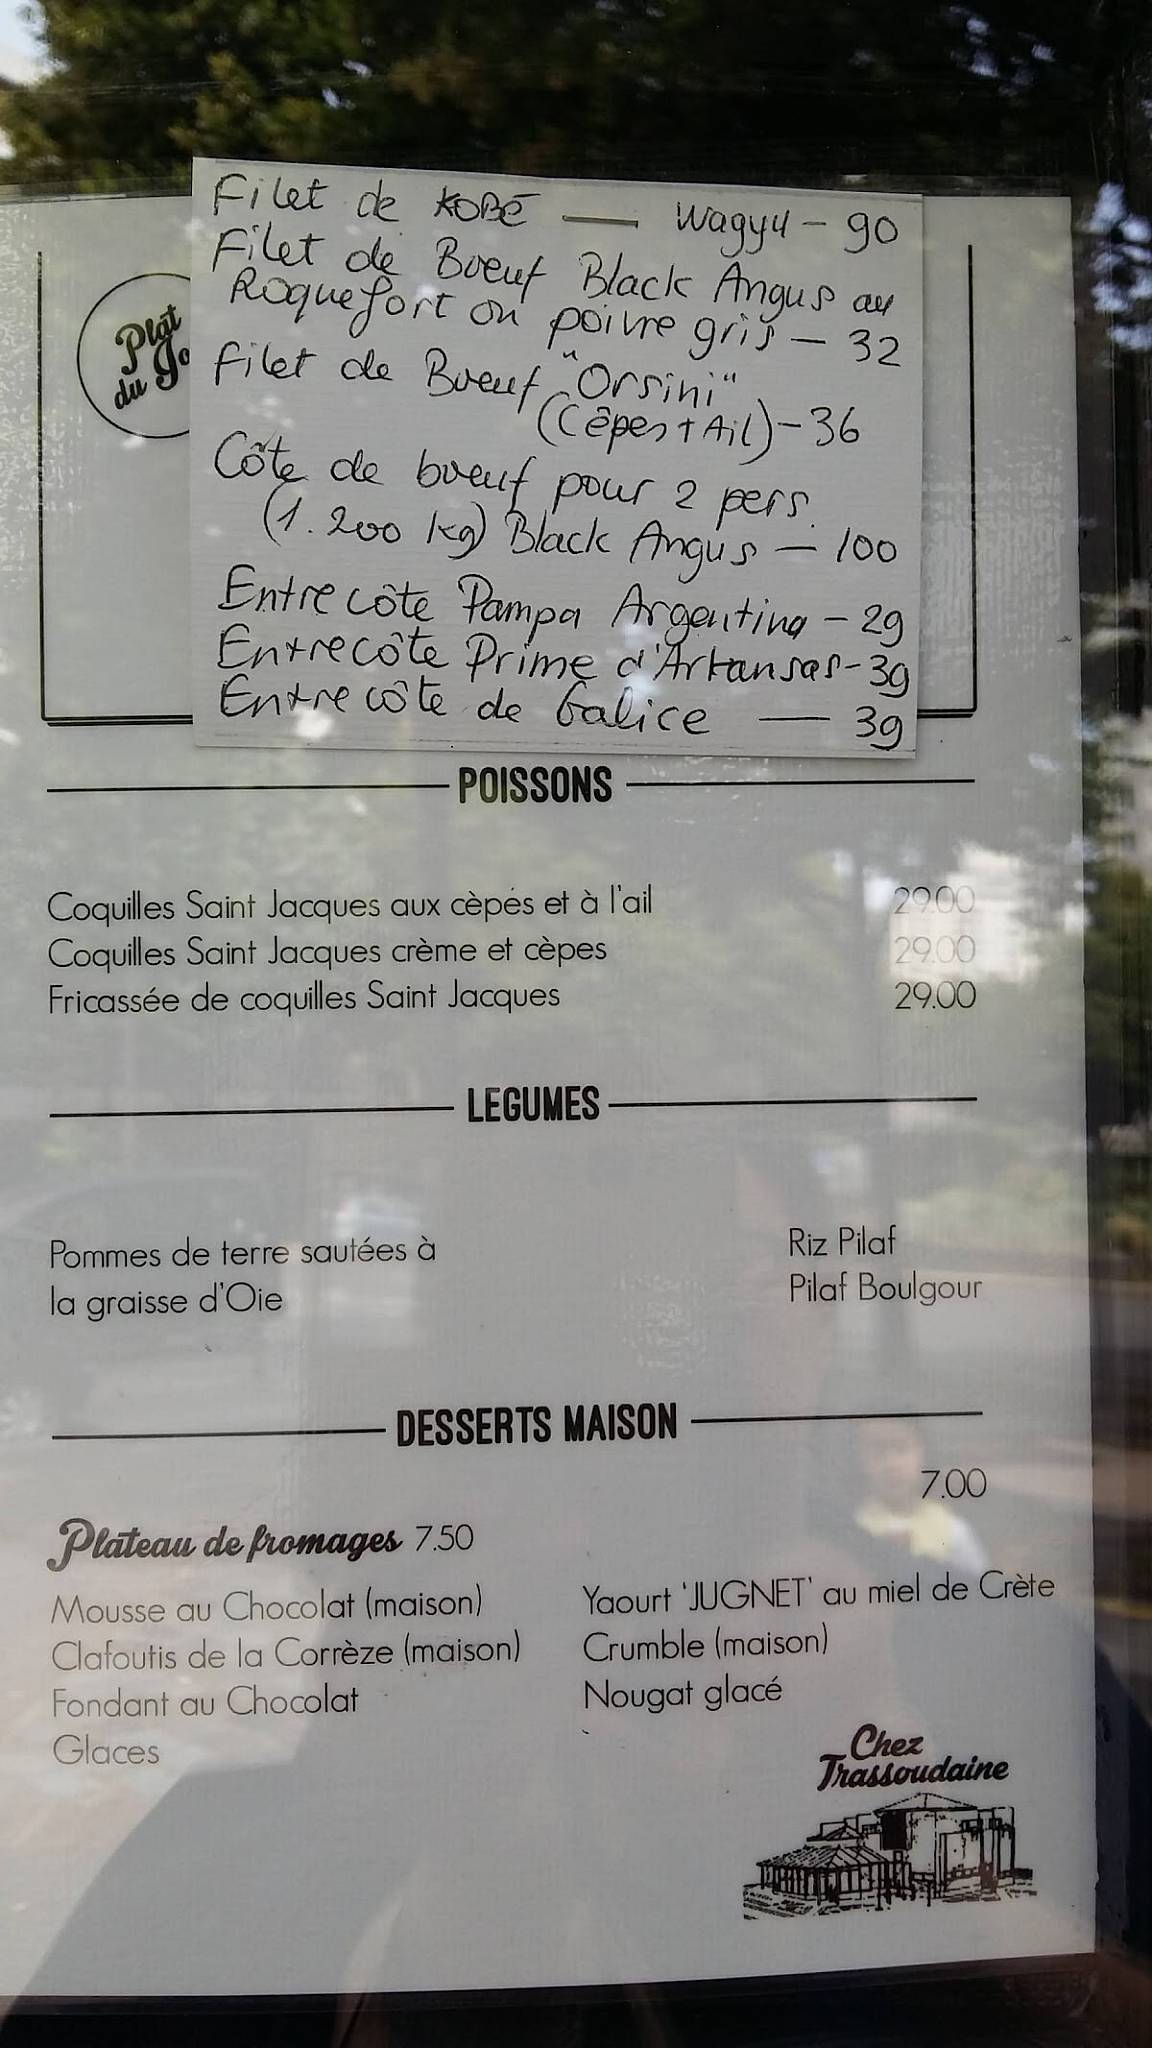 Filet de KOBÉ — Wagyu - 90
Filet de Boeuf Black Angus au
Roquefort ou poivre gris - 32
Filet de Boeuf "Orsini"
(Cêpes + Ail) - 36
Côte de boeuf pour 2 pers.
(1.200 kg) Black Angus - 100
Entrecôte Pampa Argentina - 29
Entrecôte Prime d'Arkansas - 39
Entrecôte de Galice — 39
Plat
du Jo
POISSONS
Coquilles Saint Jacques aux cèpes et à l'ail 29.00
Coquilles Saint Jacques crème et cèpes 29.00
Fricassée de coquilles Saint Jacques 29.00
LEGUMES
Pommes de terre sautées à
la graisse d'Oie
Riz Pilaf
Pilaf Boulgour
DESSERTS MAISON
7.00
Plateau de fromages 7.50
Mousse au Chocolat (maison)
Clafoutis de la Corrèze (maison)
Fondant au Chocolat
Glaces
Yaourt 'JUGNET' au miel de Crète
Crumble (maison)
Nougat glacé
Chez
Trassoudaine